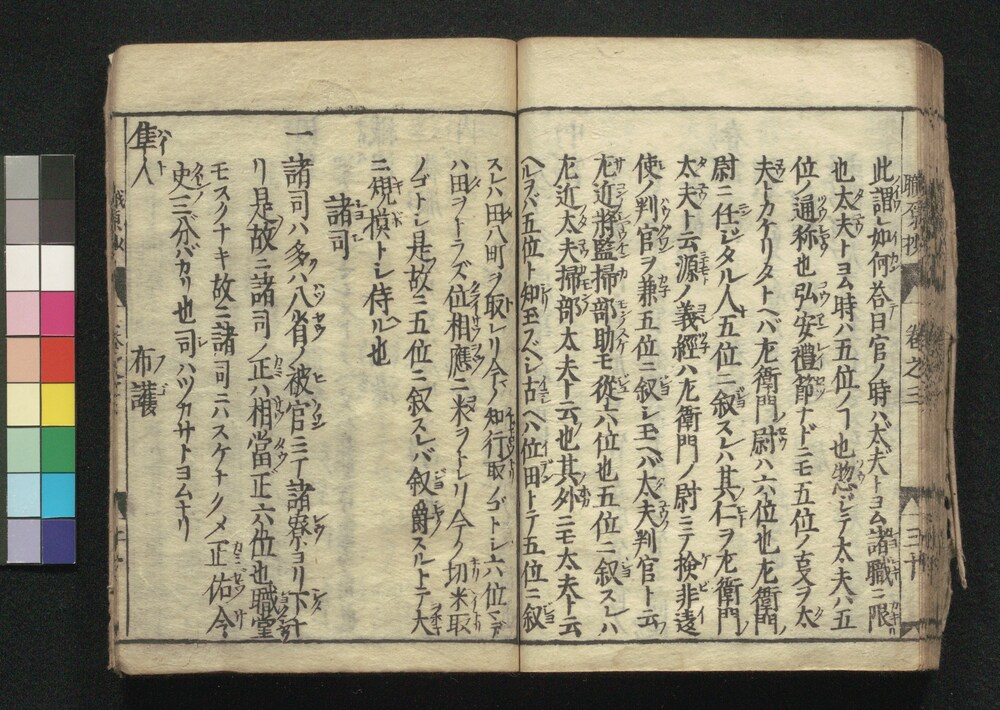 此謂レ如何答曰官ノ時ハ太夫トヨム諸職ニ限
也太夫トヨム時ハ五位ノ也惣ジテ太夫ハ五
位ノ通称也弘安禮節ナドニモ五位ノ叓ヲ太
夫トカケリタトヘバ左衛門ノ尉ハ六位也左衛門ノ
尉ニ任ジタル人五位ニ叙スレハ其仁ヲ左衛門ノ
太夫ト云源ノ義經ハ左衛門ノ尉ニテ検非違
使ノ判官ヲ兼五位ニ叙シ玉ヘバ太夫判官ト云フ
左近將監掃部助モ從六位也五位ニ叙スレハ
左近太夫掃部太夫ト云也其外ニモ太夫ト云
ヘルヲバ五位ト知玉ズヘシ古ヘハ位田トテ五位ニ叙
職原抄 巻之三 三十
スレハ田八町ヲ取レリ今ノ知行取ノゴトシ六位マデ
ハ田ヲトラズ位相應ニ米ヲトレリ今ノ切米取
ノゴトシ是故ニ五位ニ叙スレバ叙爵スルトテ大
ニ規模トシ侍ル也
諸司
一 諸司ハ多ハ八省ノ被官ニテ諸寮ヨリ下
リ是故ニ諸司ノ正ハ相當正六位也職掌
モスクナキ故ニ諸司ニハスケナク正佑令
史三分バカリ也司ハツカサトヨムナリ
隼人 布護
職原抄